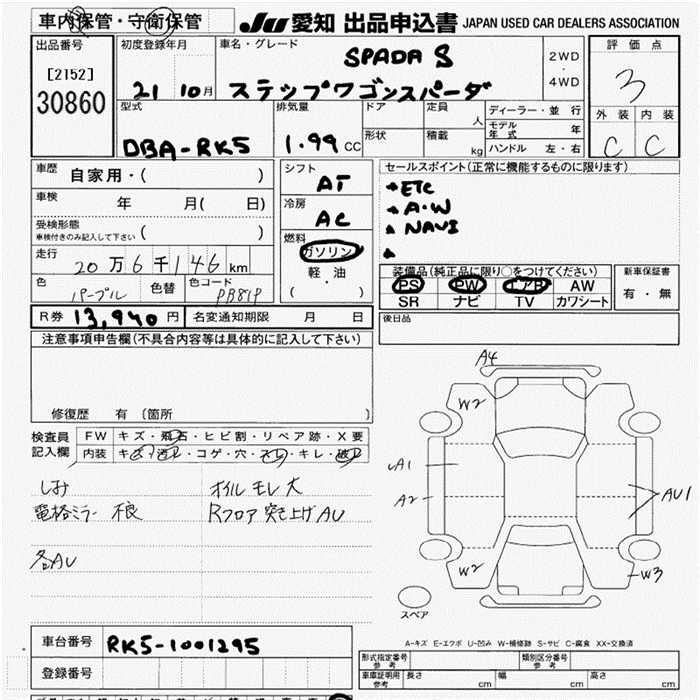 車内保管・守衛保管 JU 愛知 出品申込書 JAPAN USED CAR DEALERS ASSOCIATION
出品番号 初度登録年月 車名・グレード 評価点
[2152] SPADA S 2WD
30860 21 10月 ステップワゴンスパーダ 4WD 3
型式 排気量 ドア 定員 人 ディーラー・並行 外装 内装
DBA-RK5 1.99 CC 形状 積載 kg モデル年式 年 C C
ハンドル 左・右
車歴 自家用・( ) シフト AT セールスポイント(正常に機能するものに限ります)
車検 年 月( 日) 冷房 AC →ETC
受検形態 →A・W
車検付きのみ記入して下さい ( ) 燃料 NAVI
走行 20万6千146km ガソリン
色 パープル 色替 色コード PB81P 軽・油 ( ・ )
装備品(純正品に限り○をつけてください) 新車保証書
PS PW エアB AW 有・無
SR ナビ TV カワシート
R券 13,940円 名変通知期限 月 日 後日品
注意事項申告欄(不具合内容等は具体的に記入して下さい)
修復歴 有 〔箇所 〕
検査員 FW キズ・飛石・ヒビ割・リペア跡・X要
記入欄 内装 キズ・汚レ・コゲ・穴・スレ・キレ・破レ
しみ オイルモレ大
電格ミラー不良 Rフロア突き上げAU
各AU
A4
W2
A1
A2 AU1
W2 W3
スペア
A-キズ E-エクボ U-凹み W-補修跡 S-サビ C-腐食 XX-交換済
車台番号 RK5-1001295
登録番号
形式指定番号 参考 類別区分番号 参考
車庫証明用 参考 長さ cm 幅 cm 高さ cm